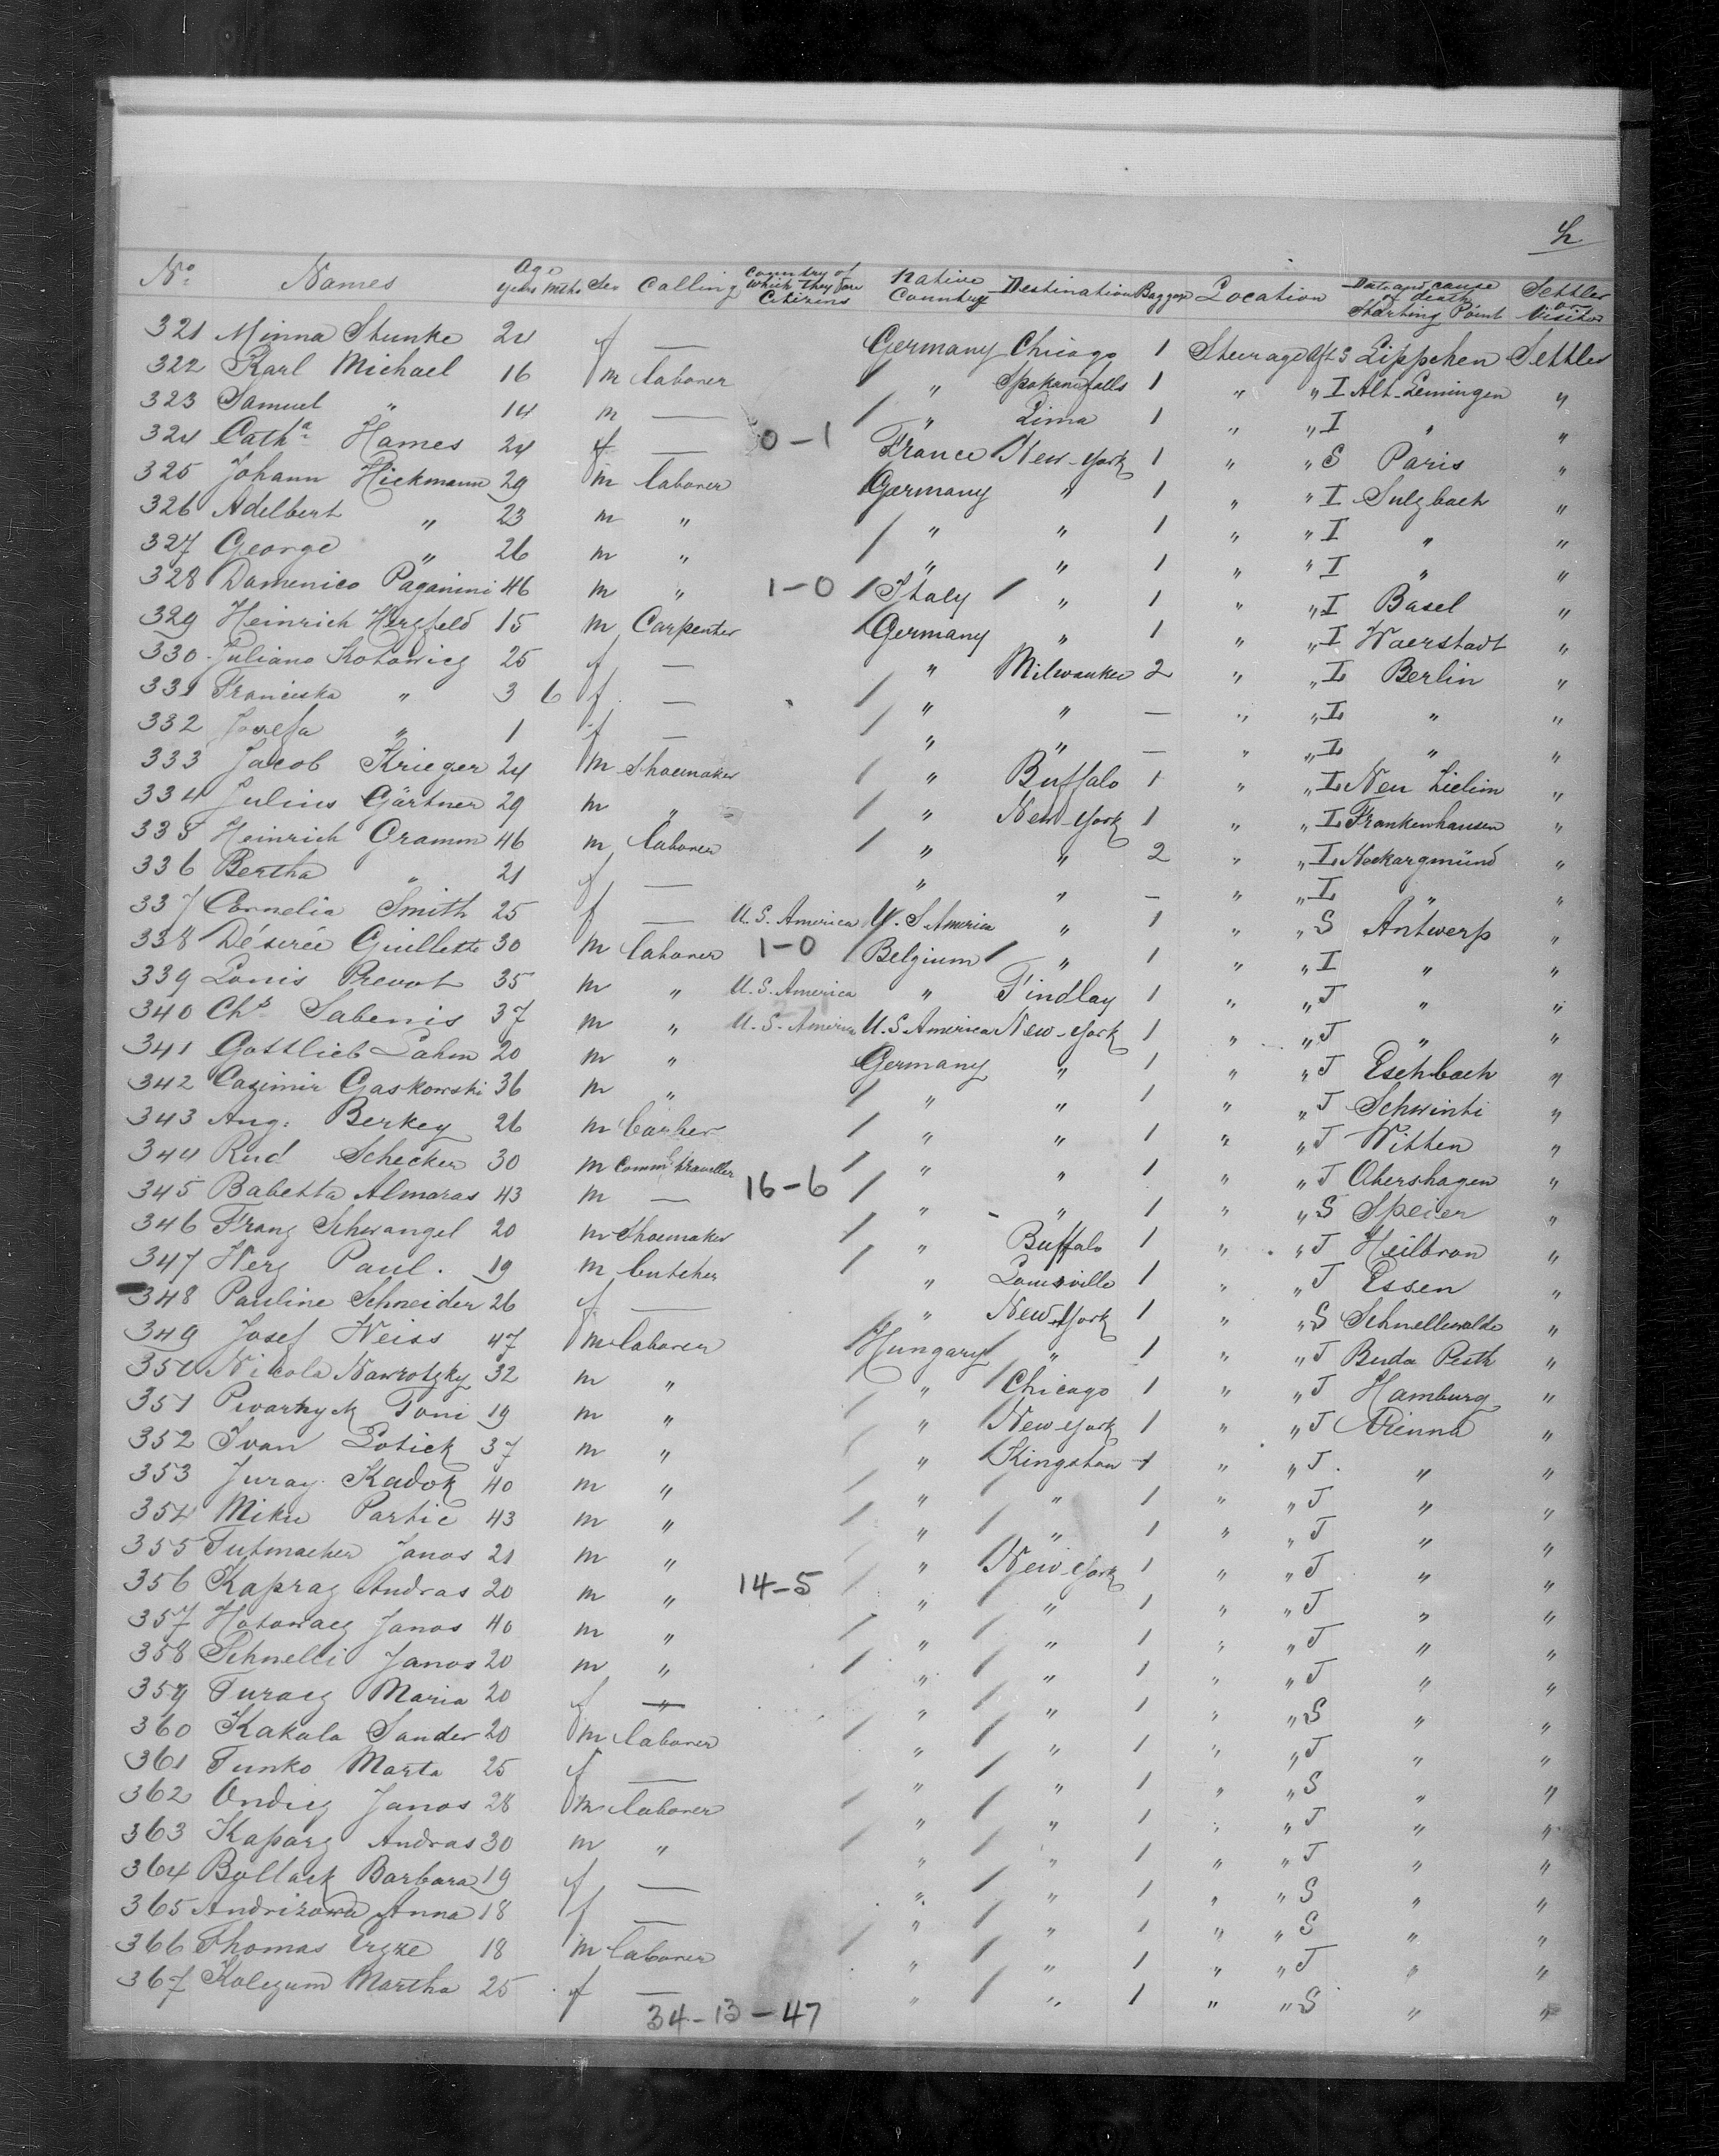 h
No Names Age Years Mths Sex Calling Country of which they are Citizens Native Country Destination Baggage Location Date and cause of death Starting Point Settler or Visitor
321 Minna Stunke 24 f — Germany Chicago 1 Steerage Aft S Lippehen Settler
322 Karl Michael 16 m laborer / " Spokanefalls 1 " " I Alt-Leiningen "
323 Samuel " 14 m — / " Lima 1 " " I " "
324 Catha Hames 24 f — 0-1 France New-York 1 " " S Paris "
325 Johann Hickmann 29 m laborer / Germany " 1 " " I Sulzbach "
326 Adelbert " 23 m " / " " 1 " " I " "
327 George " 26 m " " " 1 " " I " "
328 Domenico Paganini 46 m " 1-0 / Italy / " 1 " " I Basel "
329 Heinrich Herzfeld 15 m Carpenter / Germany " 1 " " I Waerstadt "
330 Juliana Kotowicz 25 f — " Milwaukee 2 " " I Berlin "
331 Franciska " 3 6 f — / " " — " " I " "
332 Josefa " 1 f — / " " — " " I " "
333 Jacob Krieger 24 m Shoemaker / " Buffalo 1 " " I Neu "
334 Julius Gärtner 29 m " / " New-York 1 " " I Frankenhausen "
335 Heinrich Gramm 46 m laborer / " " 2 " " I Neckargmünd "
336 Bertha " 21 f — " " — " " I " "
337 Cornelia Smith 25 f — U.S. America U.S. America " 1 " " S Antwerp "
338 Désirée Guillette 30 m laborer 1-0 / Belgium / " 1 " " I " "
339 Louis Prevot 35 m " U.S. America " Findlay 1 " " J " "
340 Chs Sabenis 37 m " U.S. America U.S America New-York 1 " " J " "
341 Gottlieb Lahm 20 m " Germany " 1 " " J Eschbach "
342 Casimir Gaskowski 36 m " / " " 1 " " J Schwinti "
343 Aug. Berkey 26 m barber / " " 1 " " J Witten "
344 Rud Schecker 30 m Comml traveller / " " 1 " " J Obershagen "
345 Babetta Almaras 43 m — 16-6 / " " 1 " " S Speier "
346 Franz Schwangel 20 m Shoemaker / " Buffalo 1 " " J Heilbron "
347 Werz Paul. 19 m butcher / " Louisville 1 " " J Essen "
348 Pauline Schneider 26 f — " New-York 1 " " S Schnellewalde "
349 Josef Weiss 47 m laborer Hungary / " 1 " " J Buda Pesth "
350 Nicola Nawrotzky 32 m " / " / Chicago 1 " " J Hamburg "
351 Pivarnyck Toni 19 m " / " / New York 1 " " J Vienna "
352 Ivan Lotick 37 m " / " / Kingston 1 " " J " "
353 Juray Kadok 40 m " / " / " 1 " " J " "
354 Miku Partic 43 m " / " / " 1 " " J " "
355 Tutmacher Janos 21 m " " / New-York 1 " " J " "
356 Kapraz Andras 20 m " 14-5 / " / " 1 " " J " "
357 Hotowacz Janos 40 m " / " / " 1 " " J " "
358 Schnelli Janos 20 m " / " / " 1 " " J " "
359 Turacz Maria 20 f — " / " 1 " " S " "
360 Kakala Sander 20 m laborer / " / " 1 " " J " "
361 Tunko Marta 25 f — " / " 1 " " S " "
362 Ondicz Janos 28 m laborer / " / " 1 " " J " "
363 Kaparz Andras 30 m " / " / " 1 " " J " "
364 Bollack Barbara 19 f — " / " 1 " " S " "
365 Andrizowa Anna 18 f — / " / " 1 " " S " "
366 Thomas 18 m laborer / " / " 1 " " J " "
367 Kolezum Martha 25 f — " / " 1 " " S " "
34-13-47